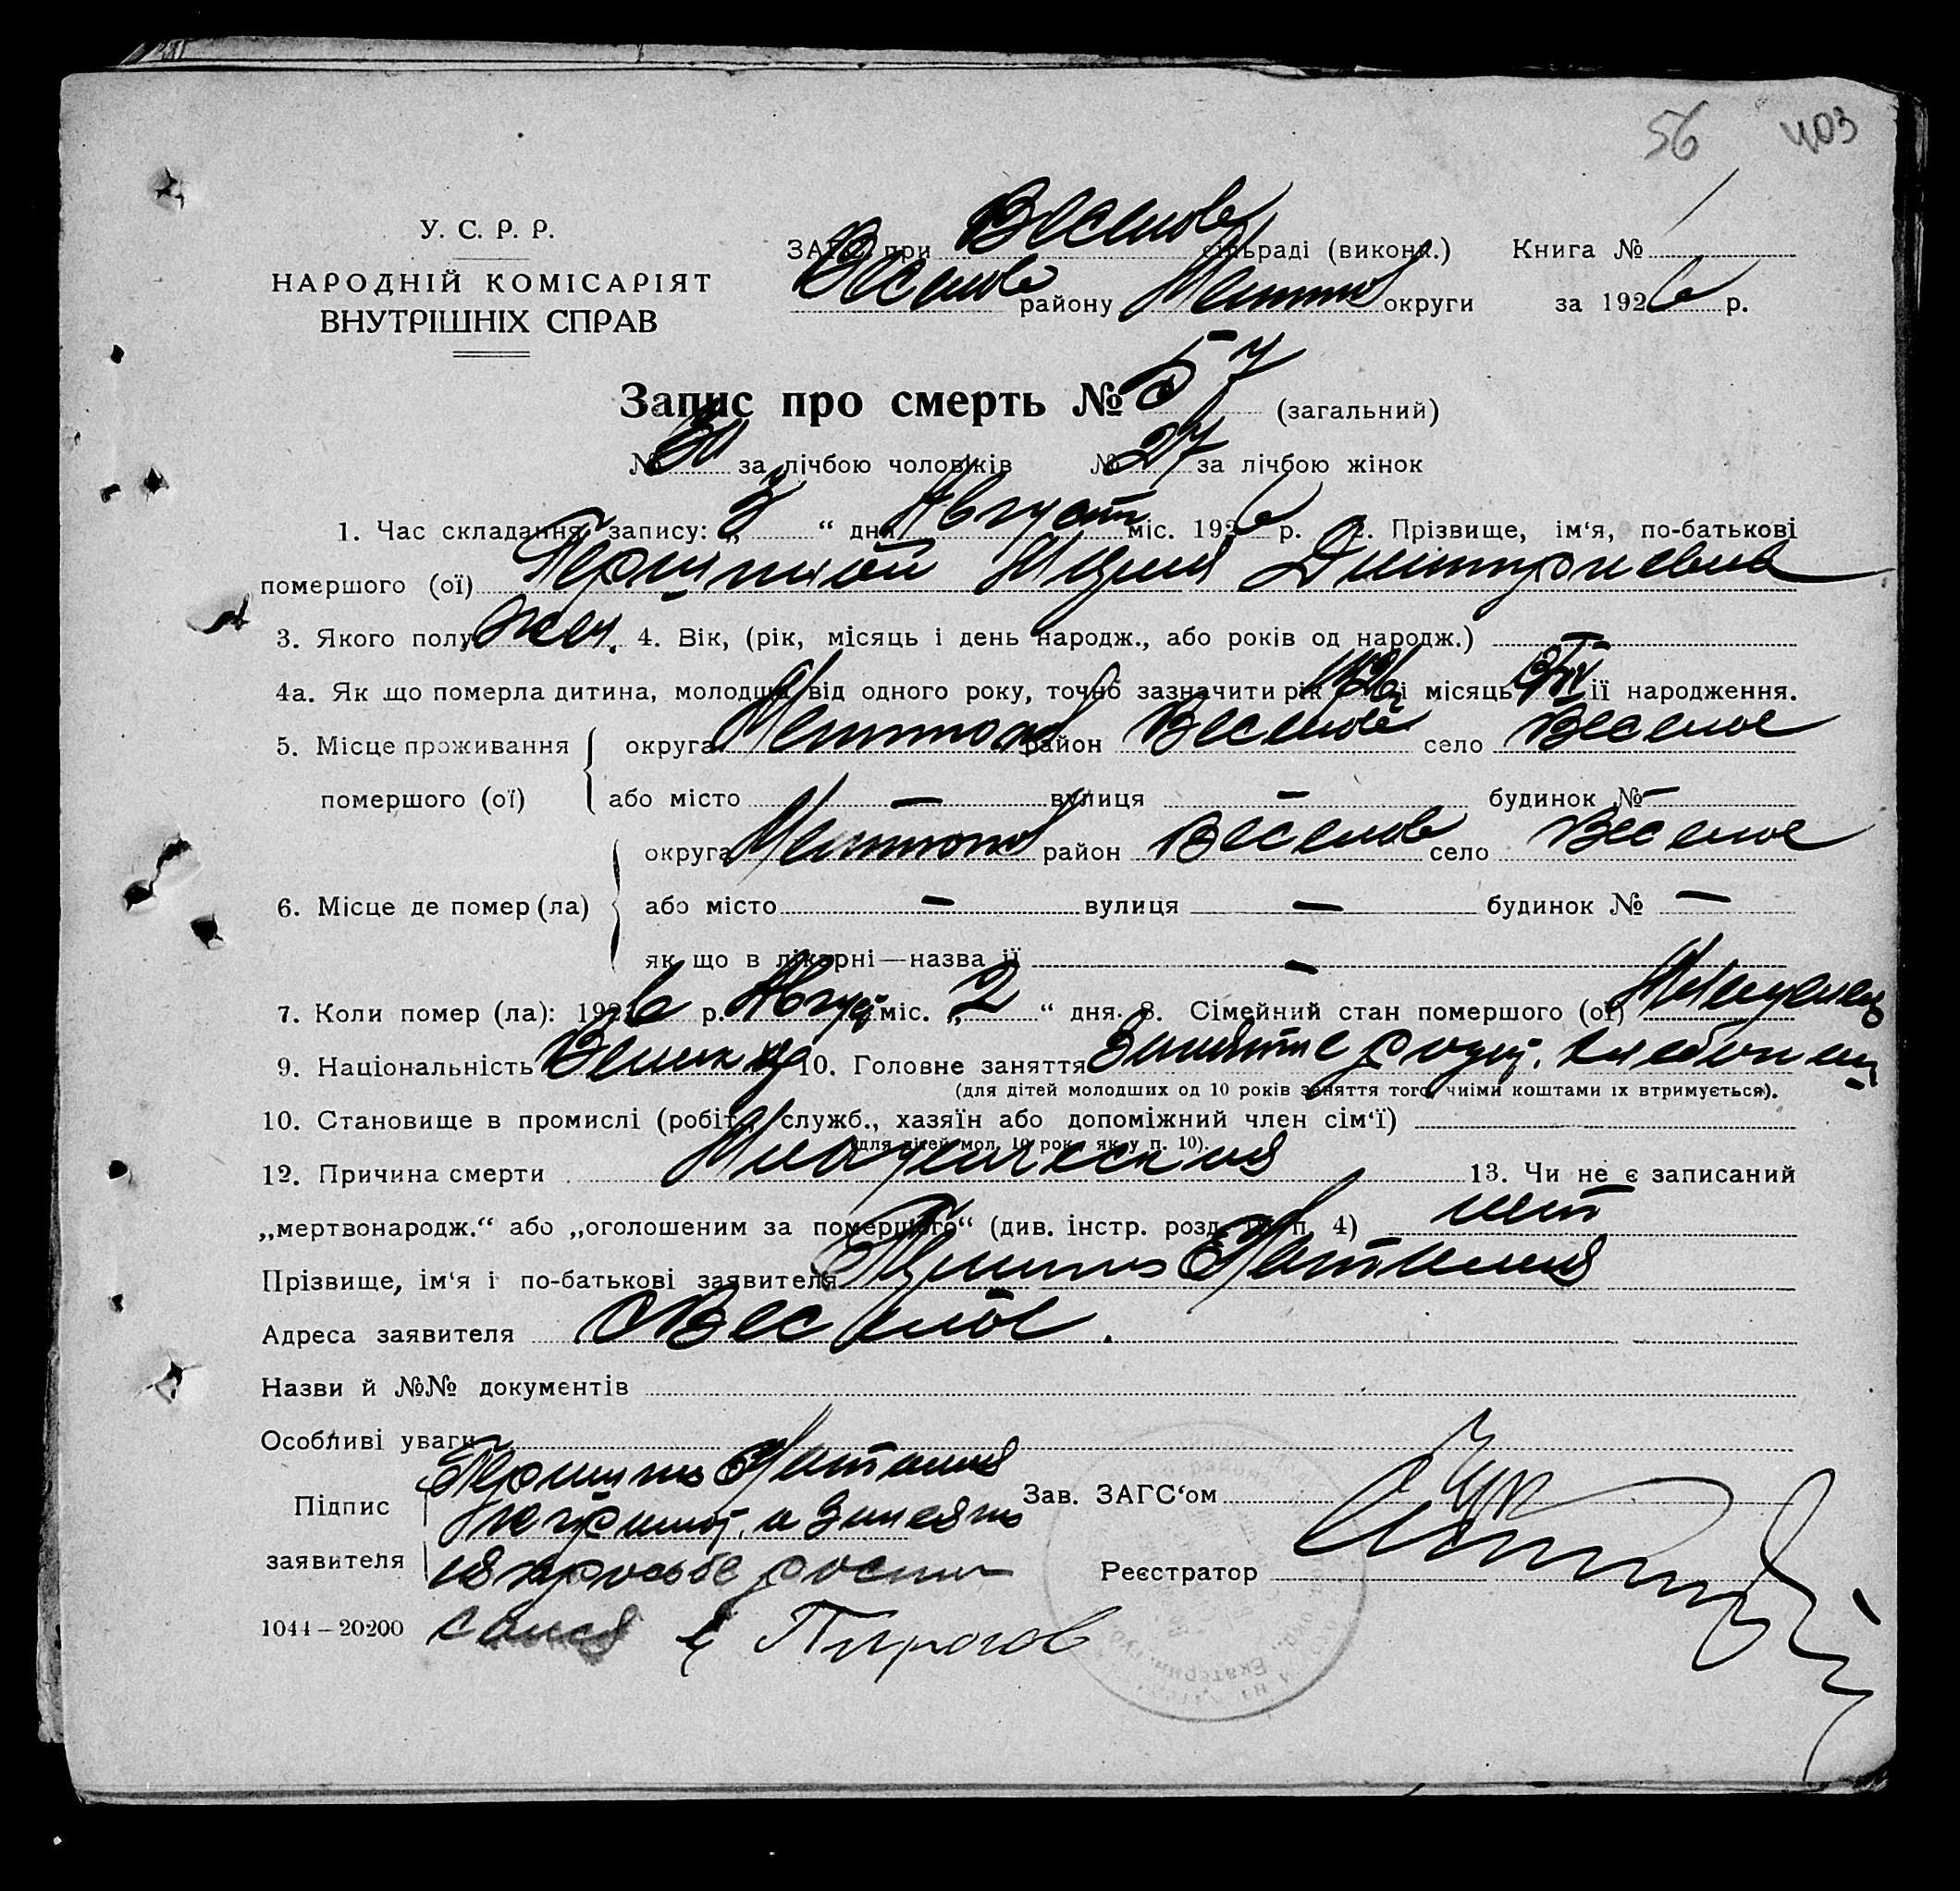 56 403
У. С. Р. Р.
НАРОДНІЙ КОМІСАРІЯТ
ВНУТРІШНІХ СПРАВ
ЗАГС при Веселов сільраді (викона.) Книга № 1
Веселов району Мелитоп округи за 1926 р.
Запис про смерть № 57 (загальний)
№ 30 за лічбою чоловіків № 27 за лічбою жінок
1. Час складання запису: „3“ дня Август міс. 1926 р. 2. Прізвище, ім'я, по-батькові
помершого (ої) Мария Дмитриевна
3. Якого полу жен. 4. Вік, (рік, місяць і день народж., або років од народж.) —
4а. Як що померла дитина, молодша від одного року, точно зазначити рік 1926 і місяць її народження.
5. Місце проживання помершого (ої) округа Мелитоп район Веселов село Веселое
або місто — вулиця — будинок № —
6. Місце де помер (ла) округа Мелитоп район Веселов село Веселое
або місто — вулиця — будинок № —
як що в лікарні—назва її —
7. Коли помер (ла): 1926 р. Авгус міс. „2“ дня. 8. Сімейний стан помершого (ої) Младенец
9. Національність 10. Головне заняття Занятие родит. хлебопаш
(для дітей молодших од 10 років заняття того, чиїми коштами їх втримується).
10. Становище в промислі (робіт., служб., хазяїн або допоміжний член сім'ї)
(для дітей мол. 10 рок. як у п. 10).
12. Причина смерти Младенческая 13. Чи не є записаний
„мертвонародж.“ або „оголошеним за помершого“ (див. інстр. розд. п. 4) нет
Прізвище, ім'я і по-батькові заявителя Наталия
Адреса заявителя с Веселое.
Назви й №№ документів
Особливі уваги
Підпис заявителя Наталия
неграмот. а за нея по
ея просьбе роспи
сался Пирогов
Зав. ЗАГС'ом
Реєстратор
1044—20200